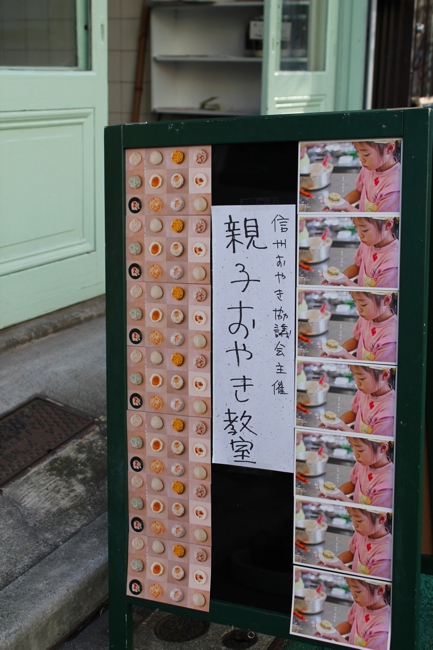 信州おやき協議会主催
親子おやき教室